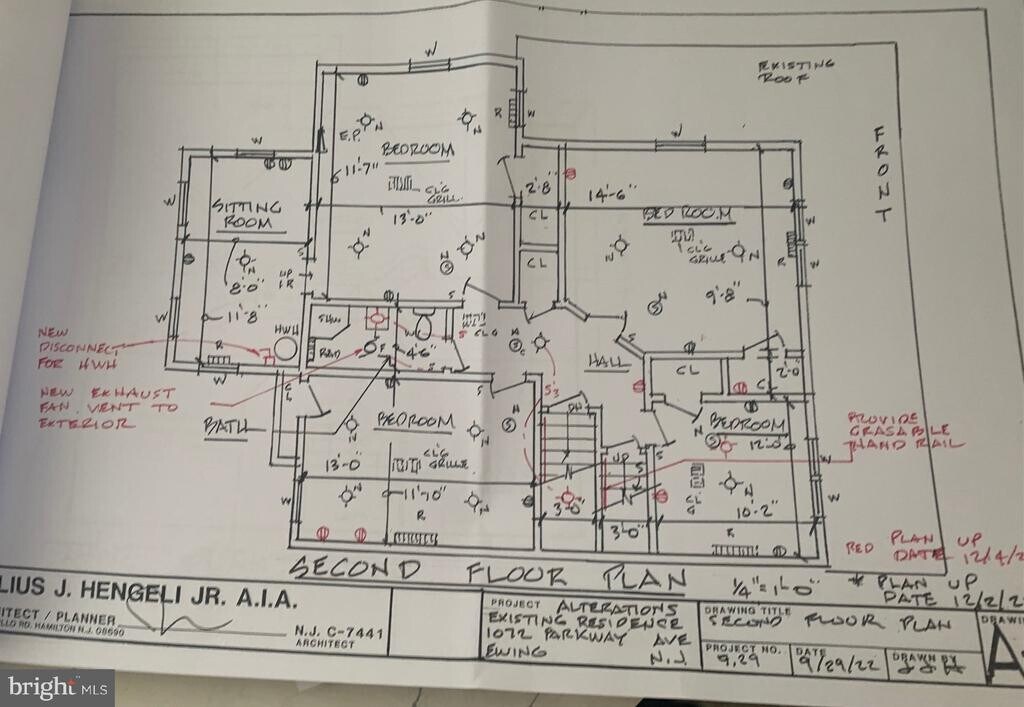 EXISTING
ROOF
FRONT
W
W
W
R
N
N
E.P.
BEDROOM
11'-7"
CL'G
GRILL
13'-0"
2'-8"
CL
CL
14'-6"
BED ROOM
CL'G
GRILLE
N
N
9'-8"
R
W
W
W
SITTING
ROOM
W
N
8'-0"
11'-8"
UP
1R
S
W
HWH
R
W
N
N
N
S
S
SHW
R&D
F
4'-6"
S
S
CLG
HALL
CL
C
2'-0"
NEW
DISCONNECT
FOR HWH
NEW EXHAUST
FAN VENT TO
EXTERIOR
BATH
CL
BEDROOM
N
N
CL'G
GRILLE
13'-0"
11'-10"
N
N
R
W
S3
DN
UP
3'-0"
3'-0"
BEDROOM
12'-0"
N
CL
G
10'-2"
R
W
W
PROVIDE
GRASABLE
HAND RAIL
RED PLAN UP
DATE 12/4/2
* PLAN UP
DATE 12/2/2
SECOND FLOOR PLAN
1/4"=1'-0"
LIUS J. HENGELI JR. A.I.A.
ITECT / PLANNER
LLO RD. HAMILTON N.J. 08690
N.J. C-7441
ARCHITECT
PROJECT ALTERATIONS
EXISTING RESIDENCE
1072 PARKWAY AVE
EWING N.J.
DRAWING TITLE
SECOND FLOOR PLAN
PROJECT NO.
9.29
DATE
9/29/22
DRAWN BY
JJH
DRAWI
A
bright MLS